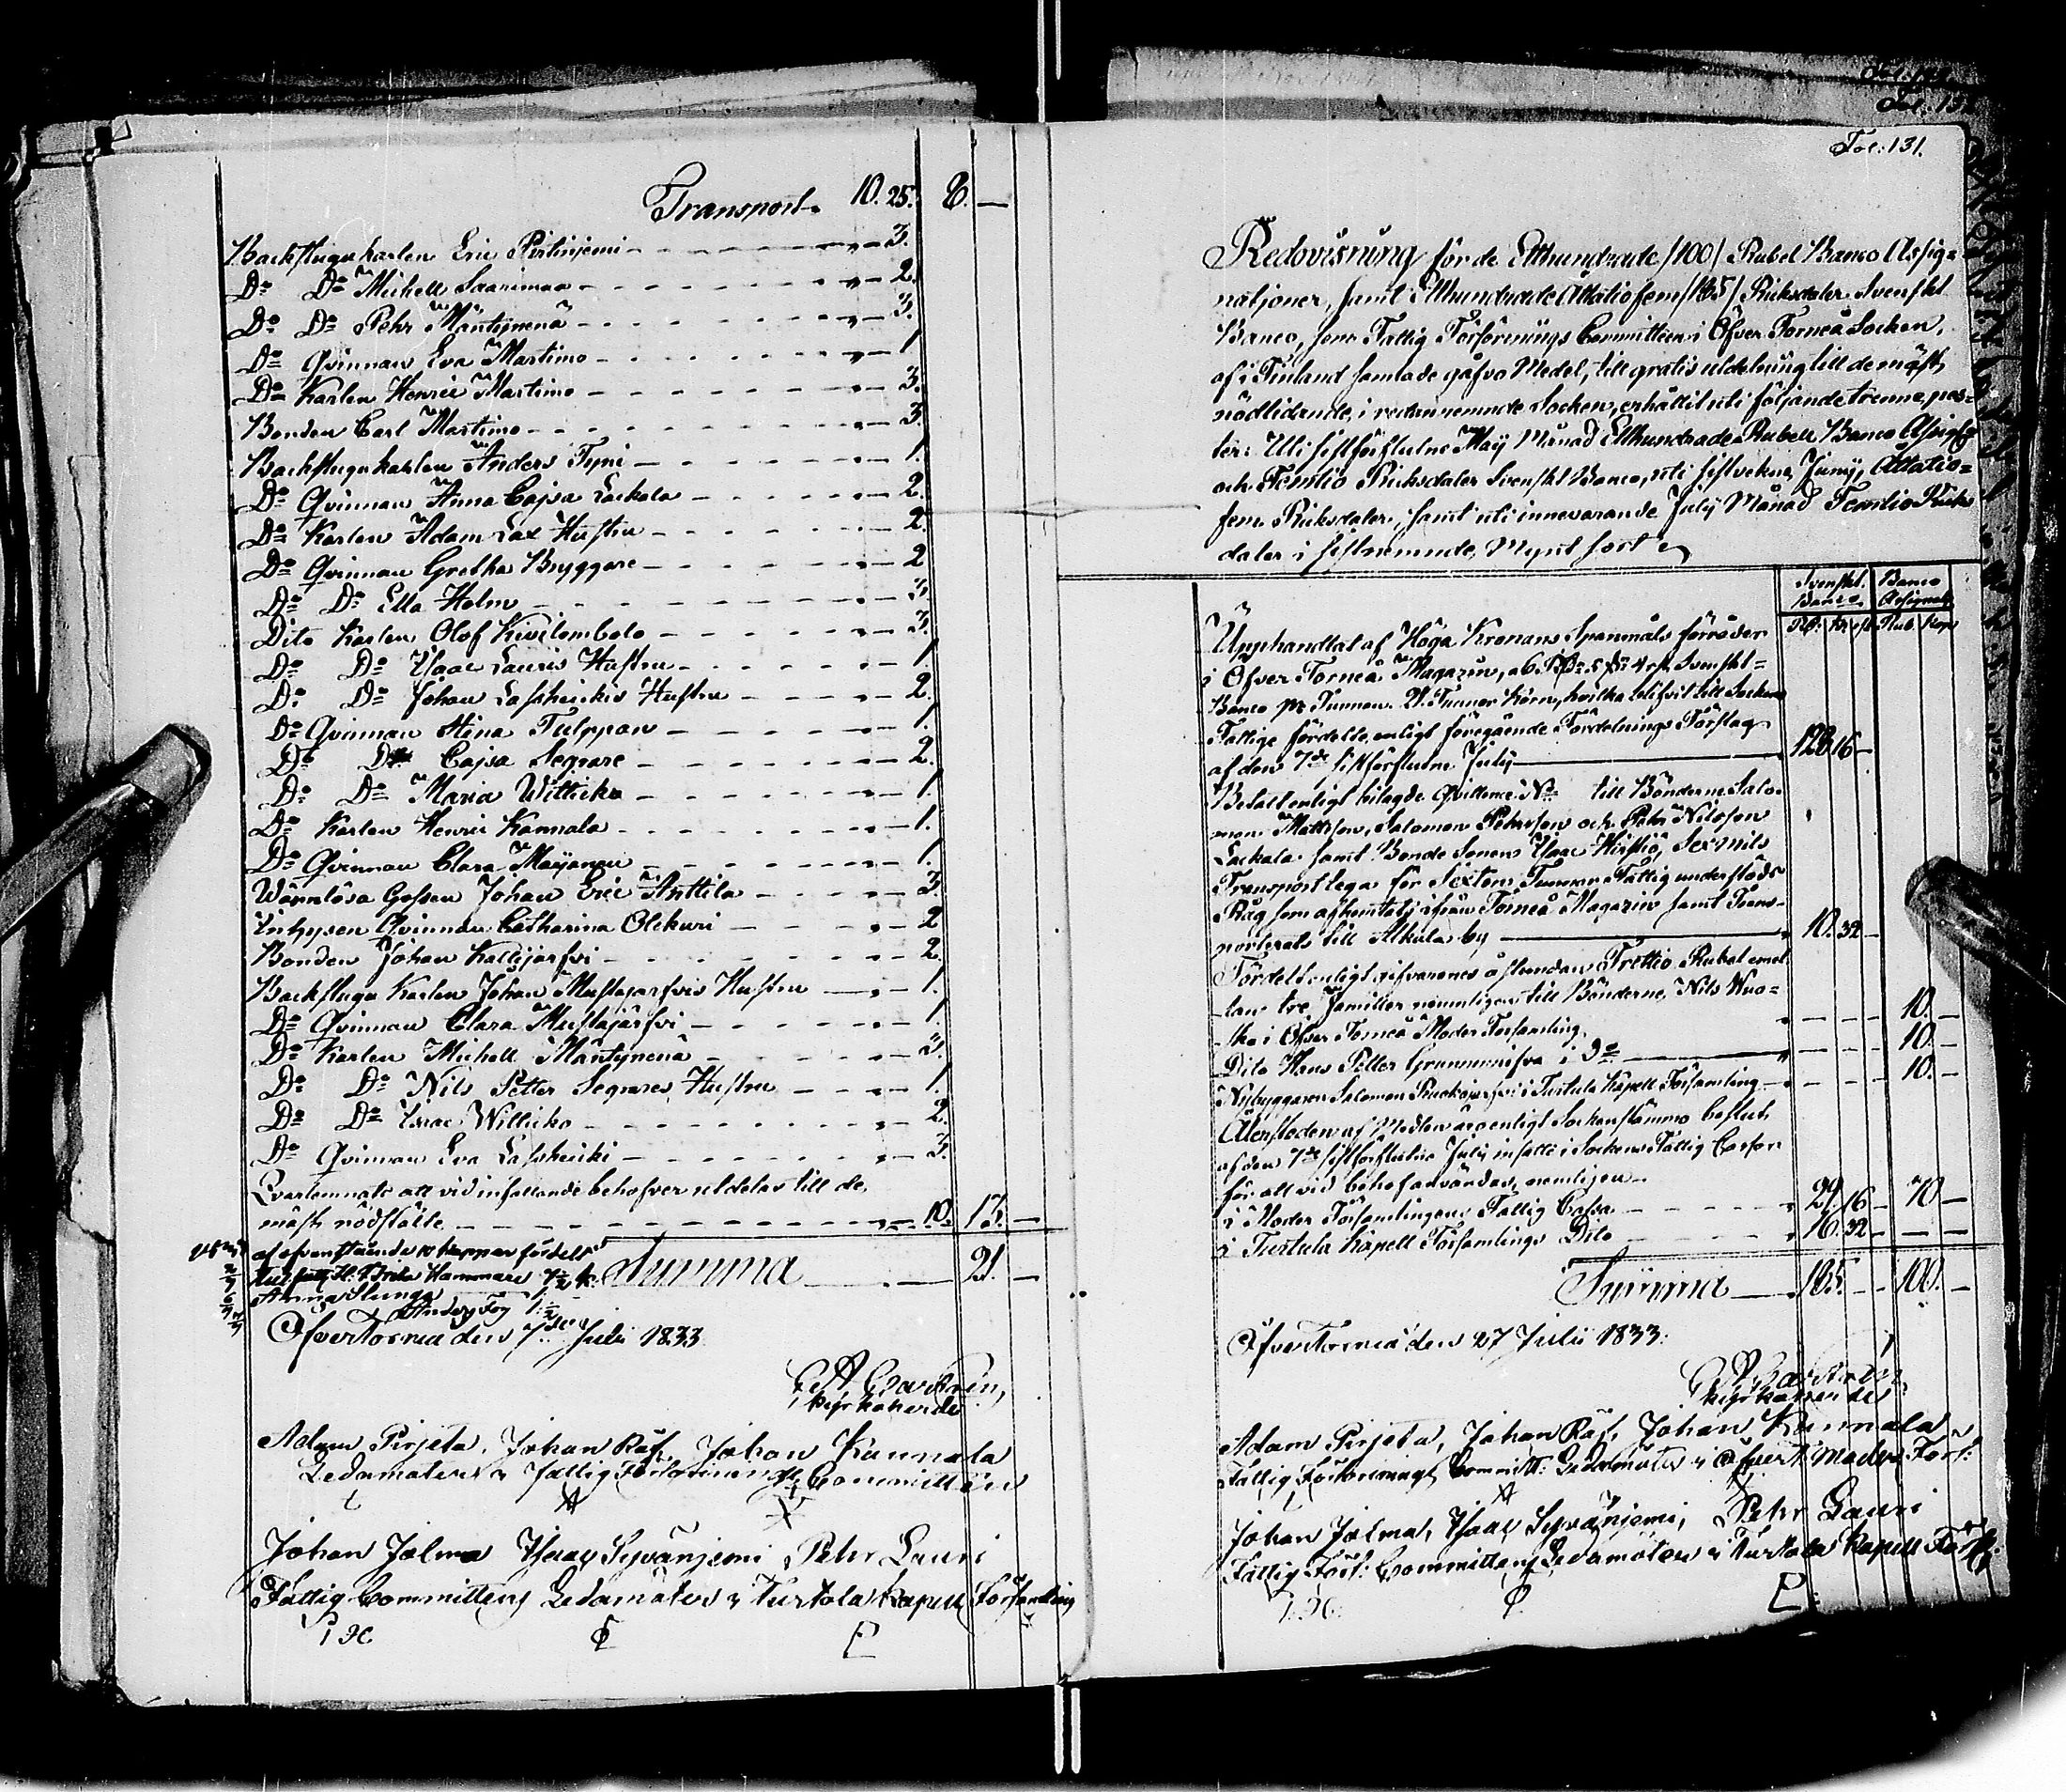 Transport. 10. 25. 8. —
Backstugukarlen Eric Pirtinjemi - - - „ - 3.
Do Do Michell Saarimaa - - - „ - 2.
Do Do Pehr Mäntynenä - - - „ - 3.
Do Qvinnan Eva Martimo - - - „ - 1
Do Karlen Henric Martimo - - - „ - 3.
Bonden Carl Martimo - - - „ - 3.
Backstugukarlen Anders Fyni - - - „ - 1.
Do Qvinnan Anna Cajsa Lackala - - - „ - 2.
Do Karlen Adam Lax Hustru - - - „ - 2.
Do Qvinnan Gretha Bryggare - - - „ - 2
Do Do Ella Holm - - - „ - 3.
Dito Karlen Olof Kivilombolo - - - „ - 3.
Do Do Isaac Lauris Hustru - - - „ - 1.
Do Do Johan Lassheickis Hustru - - - „ - 2.
Do Qvinnan Stina Tulppan - - - „ - 1.
Do Do Cajsa Segrare - - - „ - 2.
Do Do Maria Witticko - - - „ - 1.
Do Karlen Henric Kannala - - - „ - 1.
Do Qvinnan Clara Maijanen - - - „ - 1.
Wärnlösa Gossen Johan Eric Anttila - - - „ - 3.
Inhysen Qvinnan Catharina Olckuri - - - „ - 2
Bonden Johan Kallijärfvi - - - „ - 2.
Backstugu Karlen Johan Mustajärfvis Hustru - - „ - 1.
Do Qvinnan Clara Mustajärfvi - - - „ - 1.
Do Karlen Michell Mäntynenä - - - „ - 3.
Do Do Nils Petter Segrares Hustru - - - 1.
Do Do Isaac Willicko - - - „ - 2.
Do Qvinnan Eva Lassheicki - - - „ - 3.
Qvarlemnats att vid infallande behofver utdelas till de
mäst nödstälte - - - „ - 10. 13. —
af ofvanstående 10 kappar fördelt
H. Brita Hammare 7 1/2 k: Summa — 21. —
Anna Slunga 1.
Anders Foy 1 1/2
Öfvertorneå den 7de Julii 1833
Kyrkoherde
Adam Pirjeta, Johan Räf, Johan Kunnala
Ledamöter i Fattig Försörjnings Committéen
Johan Jolma Isaac Syvänjemi Pehr Lauri
Fattig Committens Ledamöter i Turtola Kapell Församling
Fol: 131.
Redovisning för de Etthundrade /100/ Rubel Banco Assig=
nationer, samt Etthundrade Åttatiofem /185/ Riksdaler Svenskt
Banco, som Fattig Försörjnings Committeen i Öfver Torneå Socken,
af i Finland samlade gåfvo Medel, till gratis utdelning till de mäst
nödlidande, i redannemnde Socken, erhållit uti följande trenne pos=
ter: Uti sistförflutne Maij Månad Etthundrade Rubel Banco Assigt:
och Femtio Riksdaler Svenskt Banco, uti sistvekne Junij, Åttatio=
fem Riksdaler, samt uti innevarande July Månad Femtio Riks
daler i sistnemnde Mynt sort.
Svenskt Banco Banco Assignat.
Rd: sk rst Rub Kop
Upphandlat af Höga Kronans Spanmåls förråder
i Öfver Torneå Magazin, a 6 Rd 5 sk 4 rst Svenskt=
Banco pr Tunnan 21 Tunnor Korn, hvilka blifvit till Sockens
Fattige fördelte, enligt föregående Fördelnings Förslag
af den 7de sistförflutne July — 128. 16 —
Betalt enligt bilagde Qvittence No till Bönderne Salo-
mon Mattsson, Salomon Pehrsson och Pehr Nilsson
Lackala samt Bonde Sonen Isaac Hirstiö, Sex mils
Transport lega för Sexton Tunnor Fattig understöds
Råg som afhemtats ifrån Torneå Magazin samt Trans-
porterats till Alkula by — 10. 32 —
Fördelt enligt gifvarenes åstundan Trettio Rubel emel-
lan tre Familler nemnligen till Bönderne, Nils Wuo=
sko i Öfver Torneå Moder Församling — 10. —
Dito Hans Petter Grannanifva i Do — 10. —
Nybyggaren Salomon Ruokojärfvi i Turtula Kapell Församling — 10. —
Återstoden af Medlen äro enligt Sockenstämmo beslut
af den 7de sistförflutne July insatte i Sockens Fattig Cassor
för att vid behof användas, nemligen
i Moder Församlingens Fattig Cassa — 29. 16 — 70 —
i Turtula Kapell Församlings Dito — 16. 32 — — —
Summa — 185. — 100. —
Öfvertorneå den 27 Julii 1833:
Kyrkoherde
Adam Pirjeta, Johan Räf, Johan Kunnala
Fattig Försörjnings Committ: Ledamöter i Öfvert: Moder Förs:
Johan Jolma, Isaac Syvänjemi, Pehr Lauri
Fattig Förs: Committens Ledamöter i Turtola Kapell Förs: